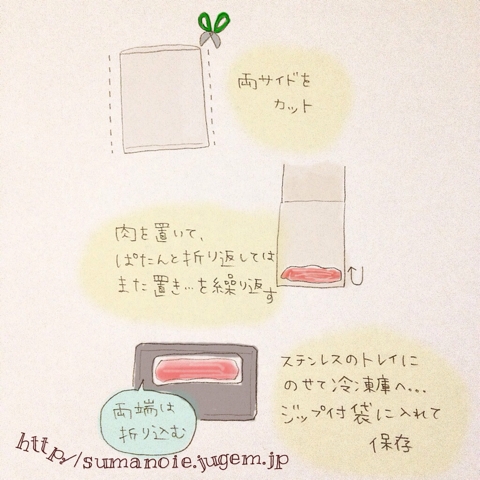 両サイドを
カット
肉を置いて、
ぱたんと折り返しては
また置き…を繰り返す
両端は
折り込む
ステンレスのトレイに
のせて冷凍庫へ...
ジップ付袋に入れて
保存
http://sumanoie.jugem.jp